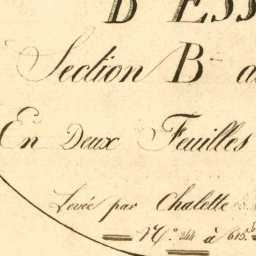 D'ESS
Section B
En Deux Feuilles
Levée par Chalette
N.º 244 à 615.